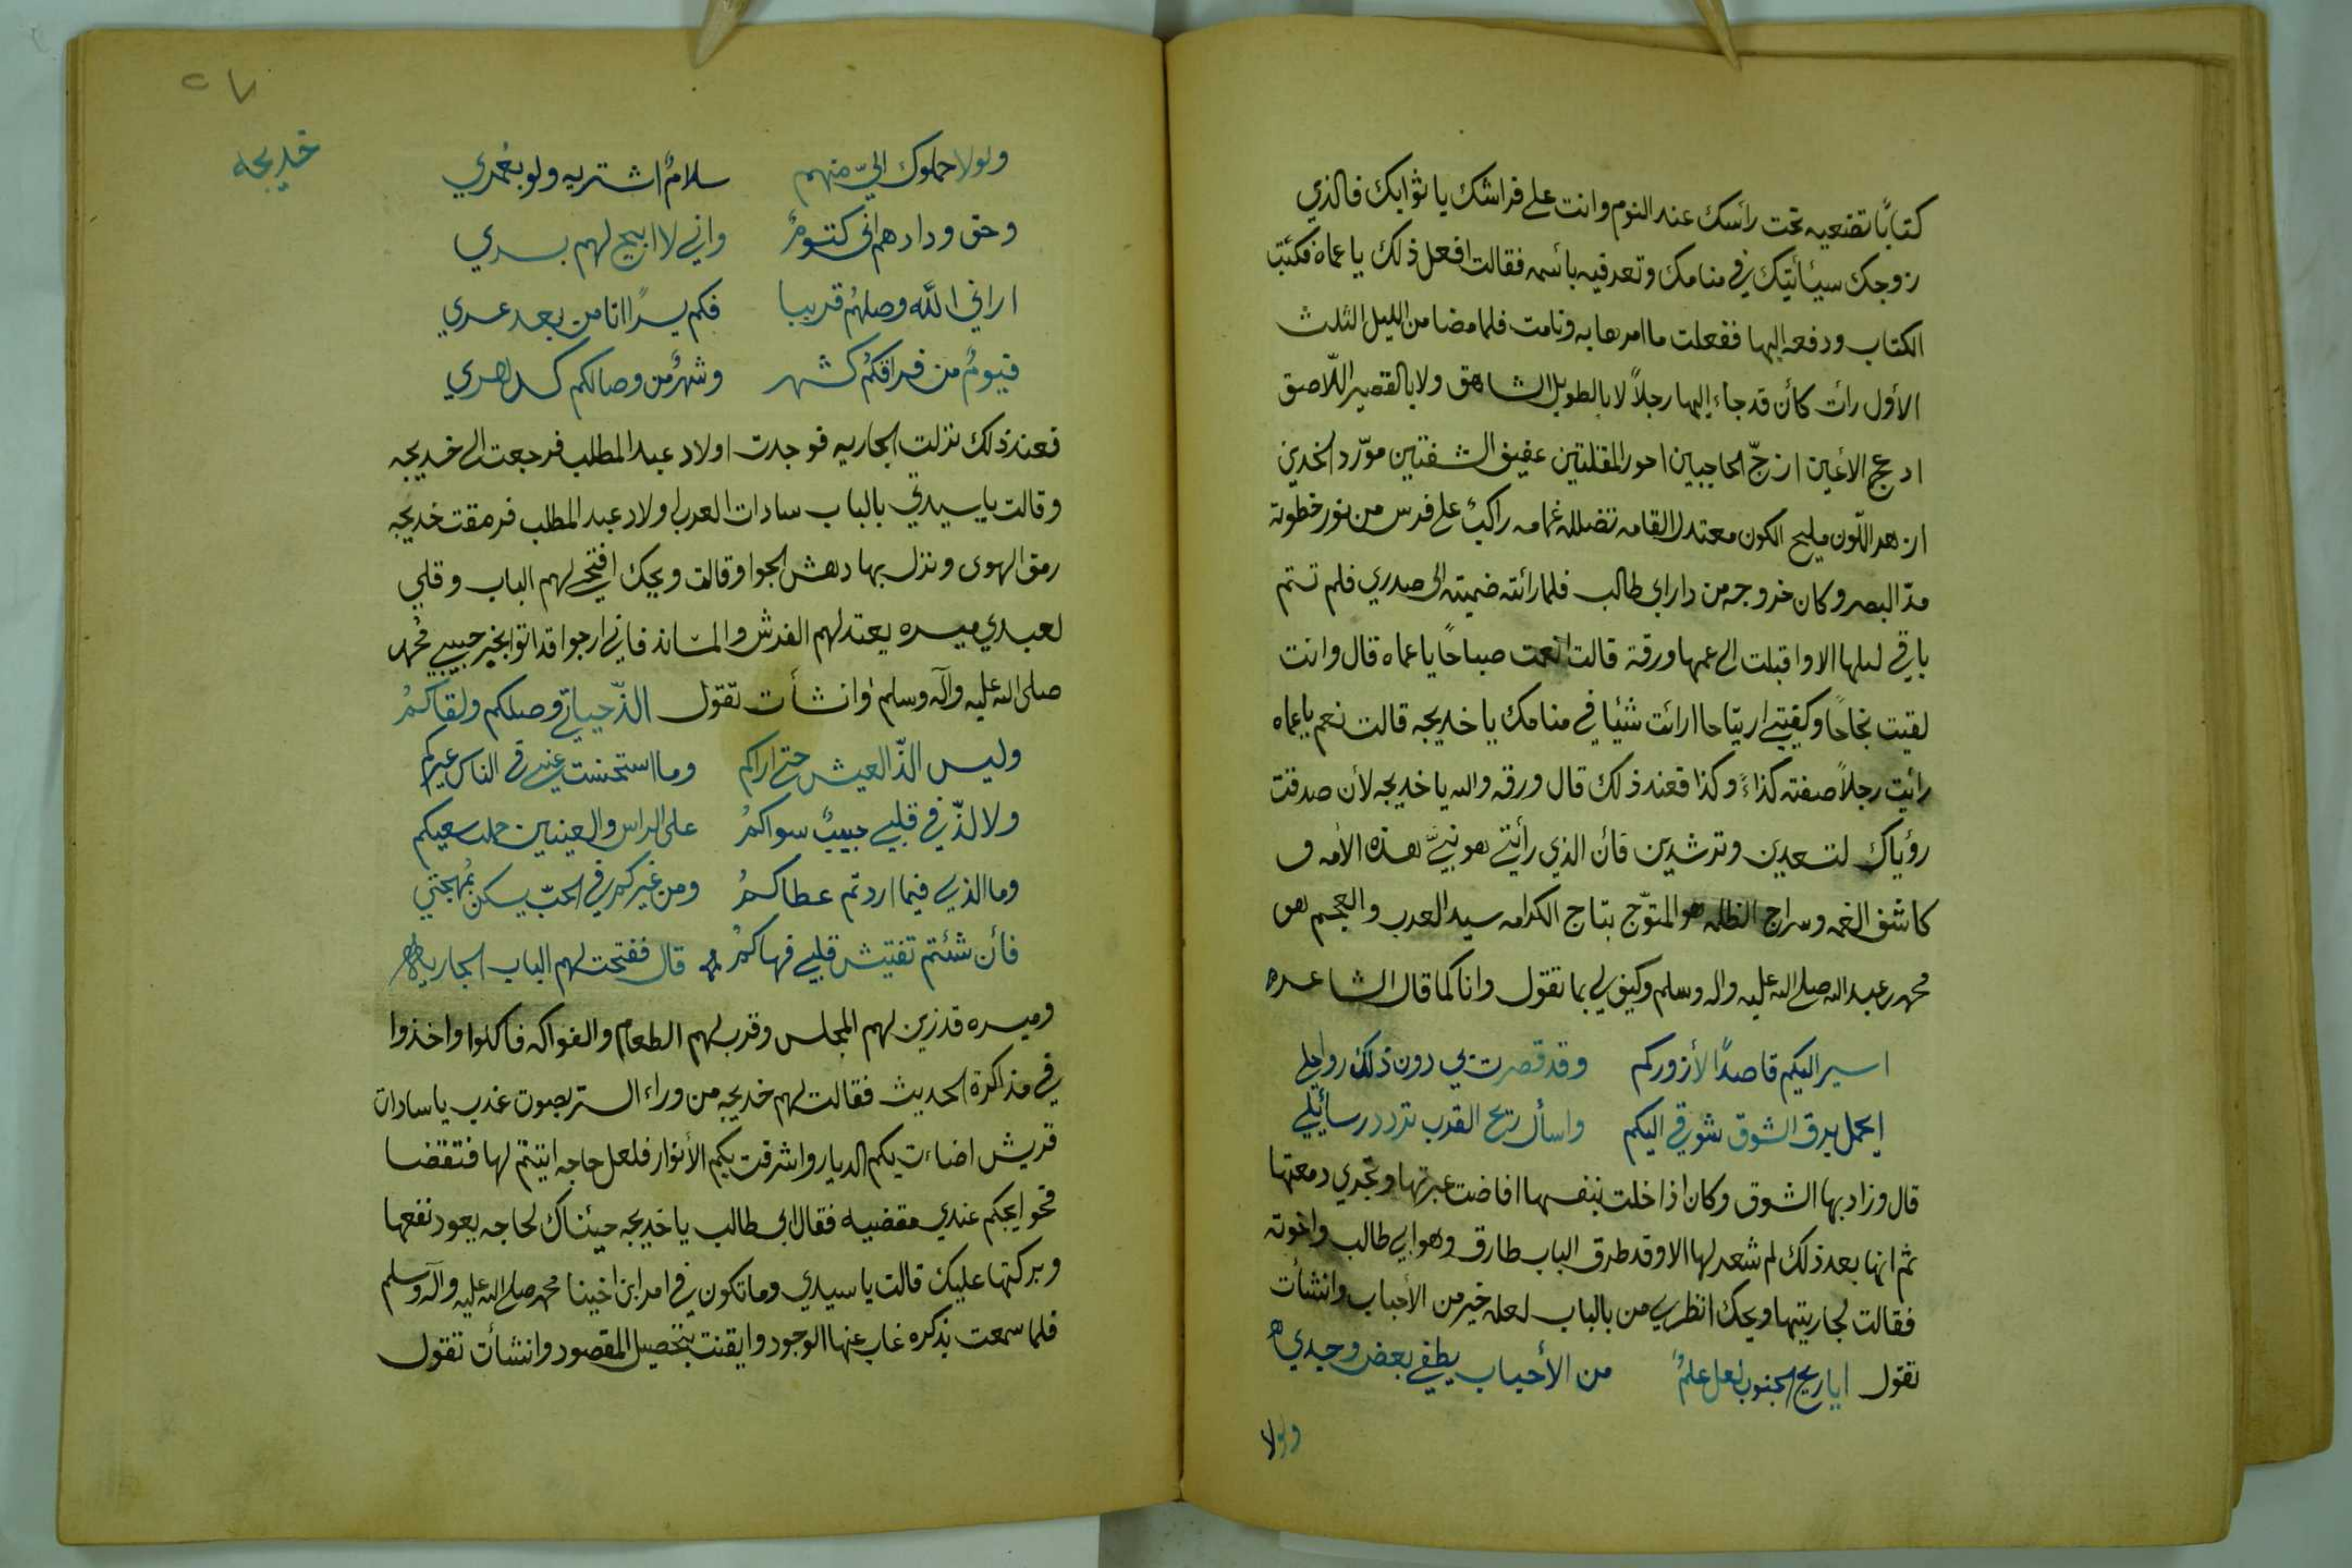 كتابًا تضعيه تحت رأسك عند النوم وانت على فراشك يا ثوابك فالذي
زوجك سيئأتيك في منامك وتعرفيه بأسمه فقالت افعل ذلك يا عماه فكتب
الكتاب ودفعه اليها ففعلت ما امرها به ونامت فلما مضا من الليل الثلث
الأول رأت كأن قد جاء اليها رجلاً لا بالطويل الشاهق ولا بالقصير اللاصق
ادعج الأعين ازجّ الحاجبين احور المقلتين عقيق الشفتين مورّد الخدين
ازهر اللون مليح الكون معتدل القامه تضلله غمامه راكبٌ على فرس من نور خطوته
مدّ البصر وكان خروجه من دار ابي طالب فلما رأته ضمته الى صدري فلم تستم
باقي ليلها الا واقبلت الى عمها ورقة قالت انعمت صباحًا يا عماه قال وانت
لقيت نجاحًا وكفيتي ارتياحا ارأيت شيئا في منامك يا خديجه قالت نعم يا عماه
رأيت رجلاً صفته كذاءً وكذا فعند ذلك قال ورقه والله يا خديجه لأن صدقت
رؤياك لتسعدين وترشدين فأن الذي رأيتي هو نبيّ هذه الأمه و
كاشف الغمه وسراج الظلمه هو المتوّج بتاج الكرامه سيد العرب والعجم هو
محمد بن عبد الله صلى الله عليه واله وسلم وكيف لي بما تقول وانا كما قال الشاعر ه
اسير اليكم قاصدًا لأزوركم وقد قصرت بي دون ذلك رواحلي
احمل برق الشوق شوقي اليكم واسأل ريح القرب تردد رسأيلي
قال وزاد بها الشوق وكان اذا خلت بنفسها افاضت عبرتها وتجري دمعتها
ثم انها بعد ذلك لم شعر لها الا وقد طرق الباب طارق وهو ابي طالب واخوته
فقالت لجاريتها ويحك انظري من بالباب لعله خير من الأحباب وانشأت
تقول ايا ريح الجنوب لعل علمٌ من الأحباب يطفي بعض وجدي ه
ولولا
٥٧
خديجه
ولولا حملوك اليّ منهم سلامٌ اشتريه ولو بعُمري
وحق ودادهم اني كتومٌ واني لا ابيح لهم بسري
اراني الله وصلهم قريبا فكم يسرًا اتا من بعد عسري
فيومٌ من فراقكم كشهر وشهرٌ من وصالكم كدهري
فعند ذلك نزلت الجاريه فوجدت اولاد عبد المطلب فرجعت الى خديجه
وقالت يا سيدتي بالباب سادات العرب اولاد عبد المطلب فرمقت خديجه
رمق الهوى ونزل بها دهش الجوا وقالت ويحك افتحي لهم الباب وقلي
لعبدي ميسره يعتد لهم الفرش والمساند فاني ارجوا قد اتوا بخير حبيبي محُمد
صلى الله عليه وآله وسلم وانشأت تقول الذّ حياتي وصلكم ولقاكمُ
وليس الذّ العيش حتى اراكم وما استحسنت عيني في الناس غيركم
ولا لذّ في قلبي حبيبٌ سواكمُ على الراس والعينين حمل سعيكم
وما الذي فيما اردتم عطاكمُ ومن غيركم في الحبّ يسكن مُهجتي
فأن شئتم تفتيش قلبي فهاكمُ قال ففتحت لهم الباب الجاريه
وميسره قد زين لهم المجلس وقرب لهم الطعام والفواكه فاكلوا واخذوا
في مذاكرة الحديث فقالت لهم خديجه من وراء الستر بصوت عذب يا سادات
قريش اضاءت بكم الديار واشرقت بكم الأنوار فلعل حاجه اتيتم لها فتقضا
فحوايجكم عندي مقضيه فقال ابي طالب يا خديجه جيئناك لحاجه يعود نفعها
وبركتها عليك قالت يا سيدي وما تكون في امر ابن اخينا محمد صلى الله عليه وآله وسلم
فلما سمعت بذكره غاب عنها الوجود وايقنت بتحصيل المقصود وانشأت تقول